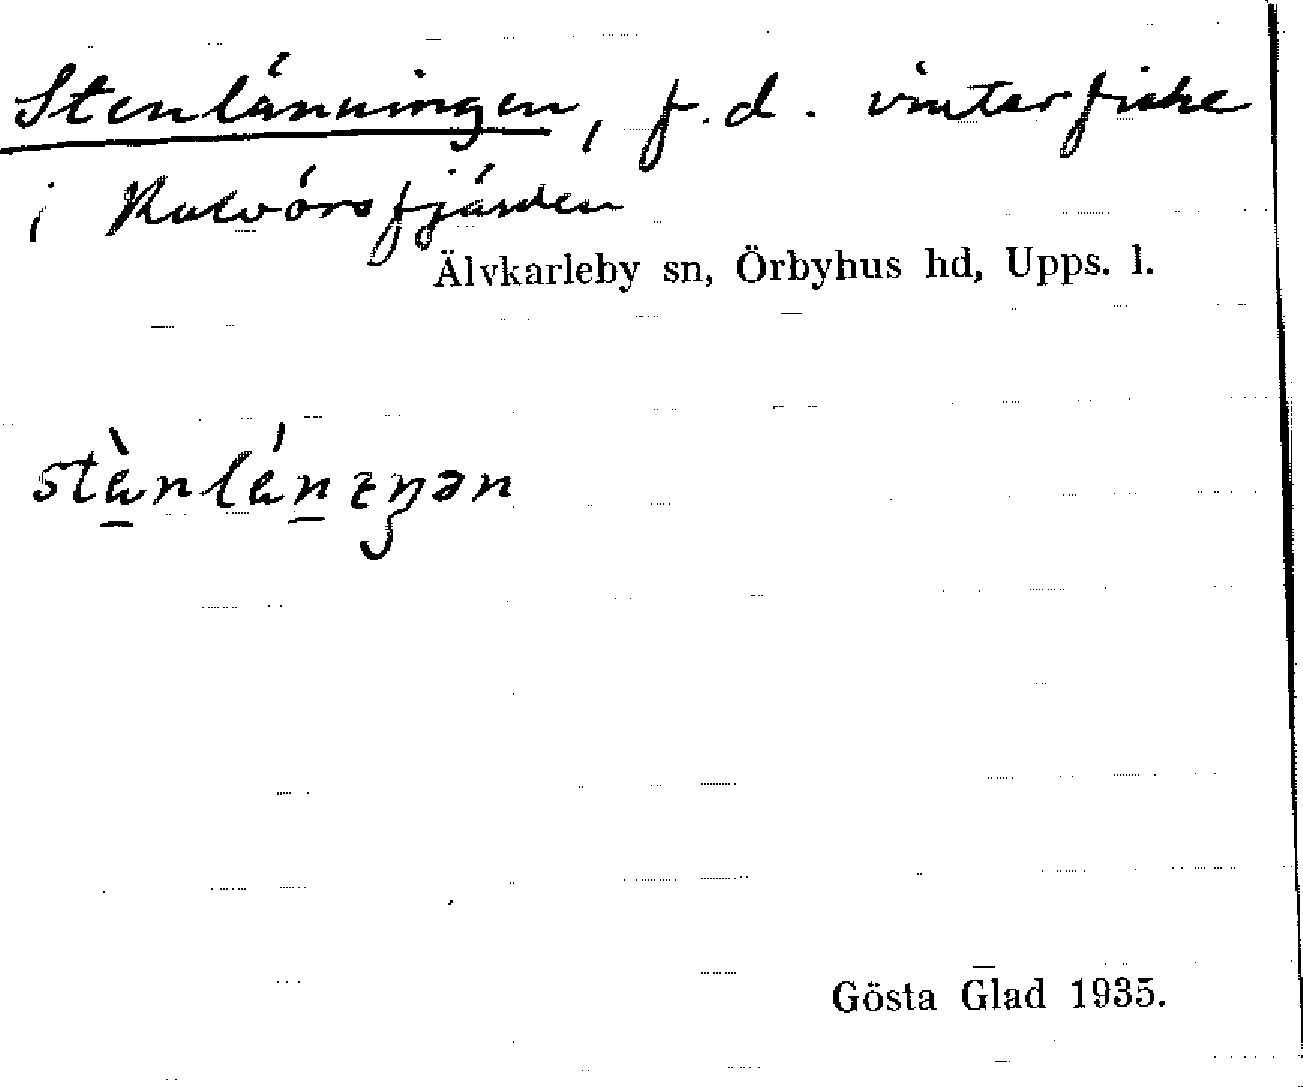 Stenlänningen, f.d. vinterfiske
i Kalvörsfjärden
Älvkarleby sn, Örbyhus hd, Upps. l.
Gösta Glad 1935.